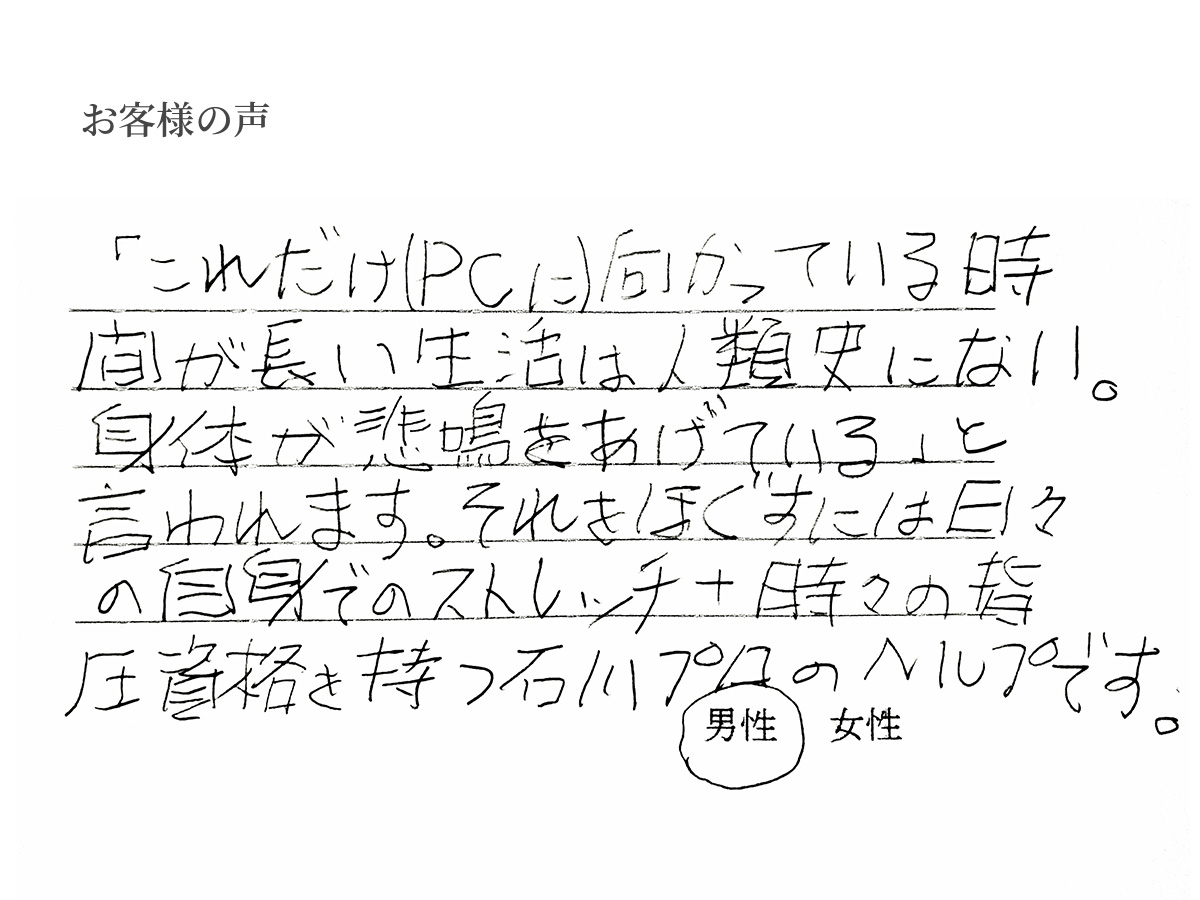 お客様の声
「これだけ(PCに)向かっている時
間が長い生活は人類史にない。
身体が悲鳴をあげている」と
言われます。それをほぐすには日々
の自身でのストレッチ+時々の指
圧資格を持つ石川プロのヘルプです。
男性 女性